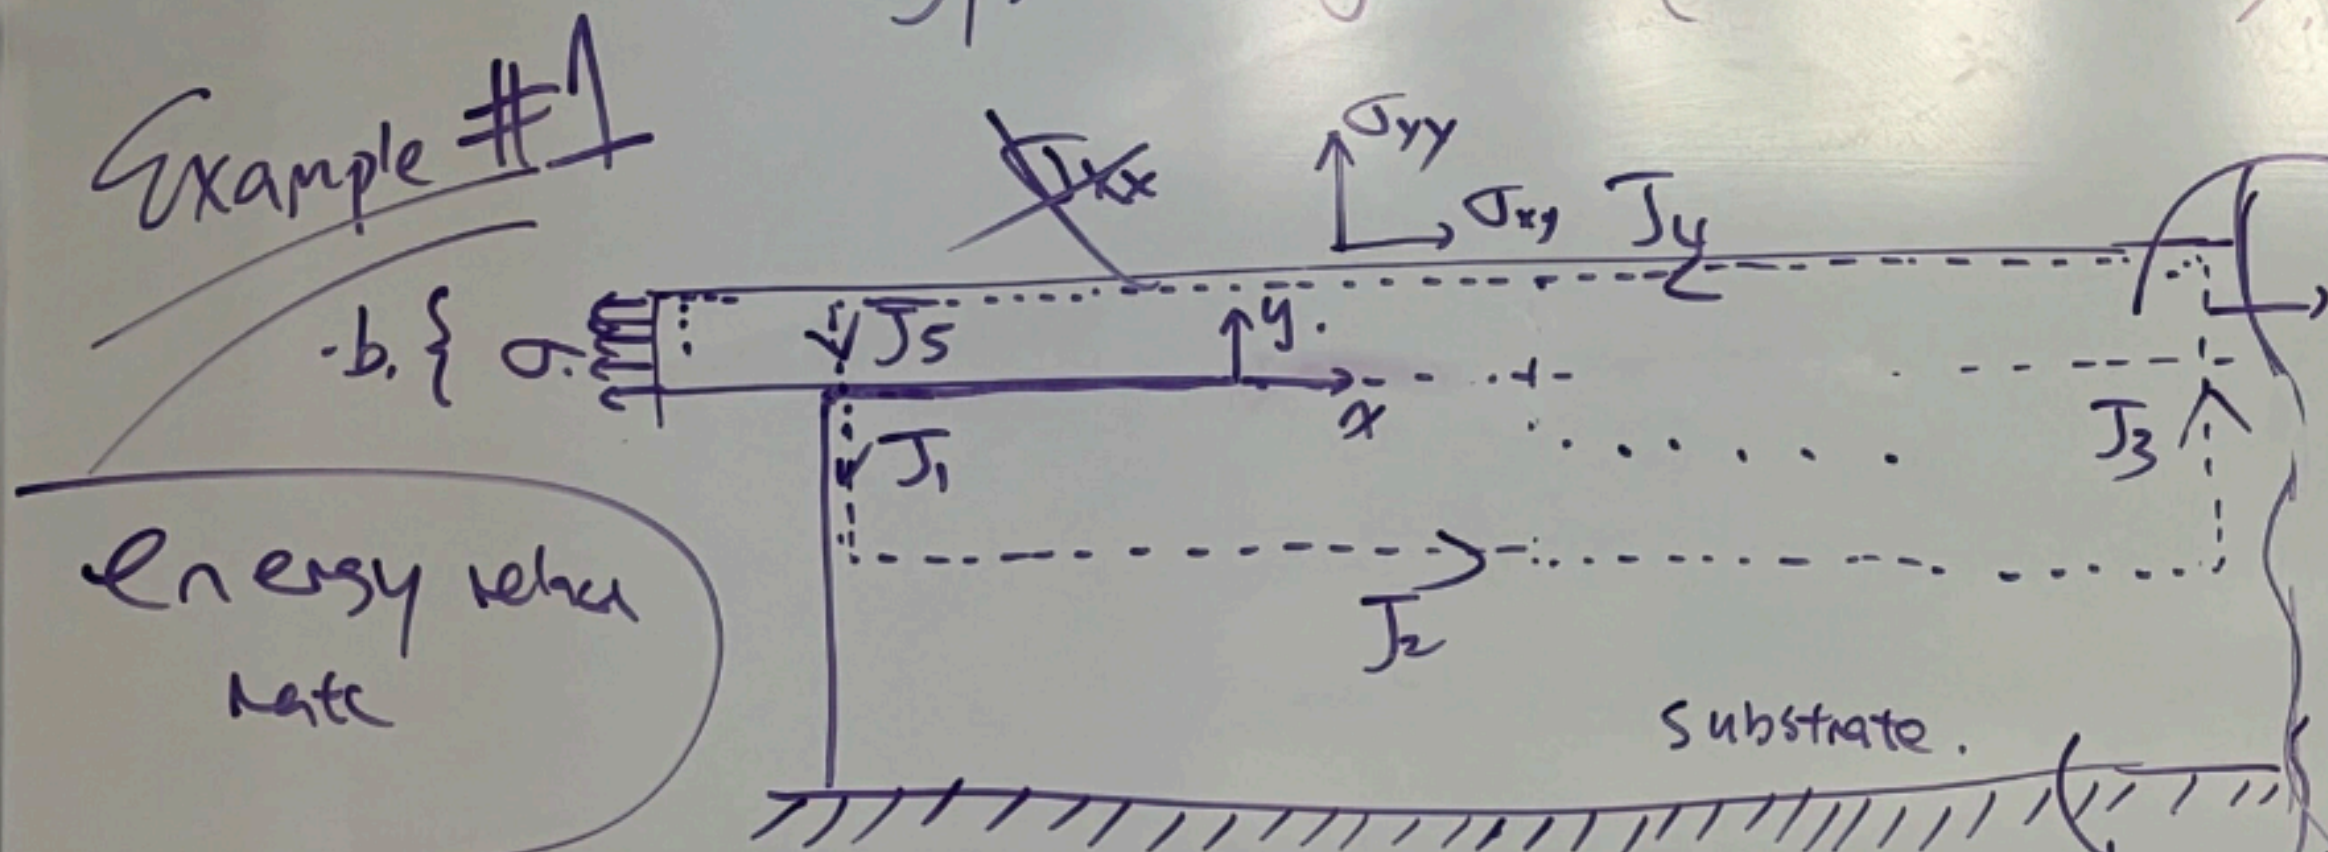 Example #1
σxx
σyy
σxy
J4
b. { σ.
J5
y.
x
J1
J3
J2
energy
rate
substrate.